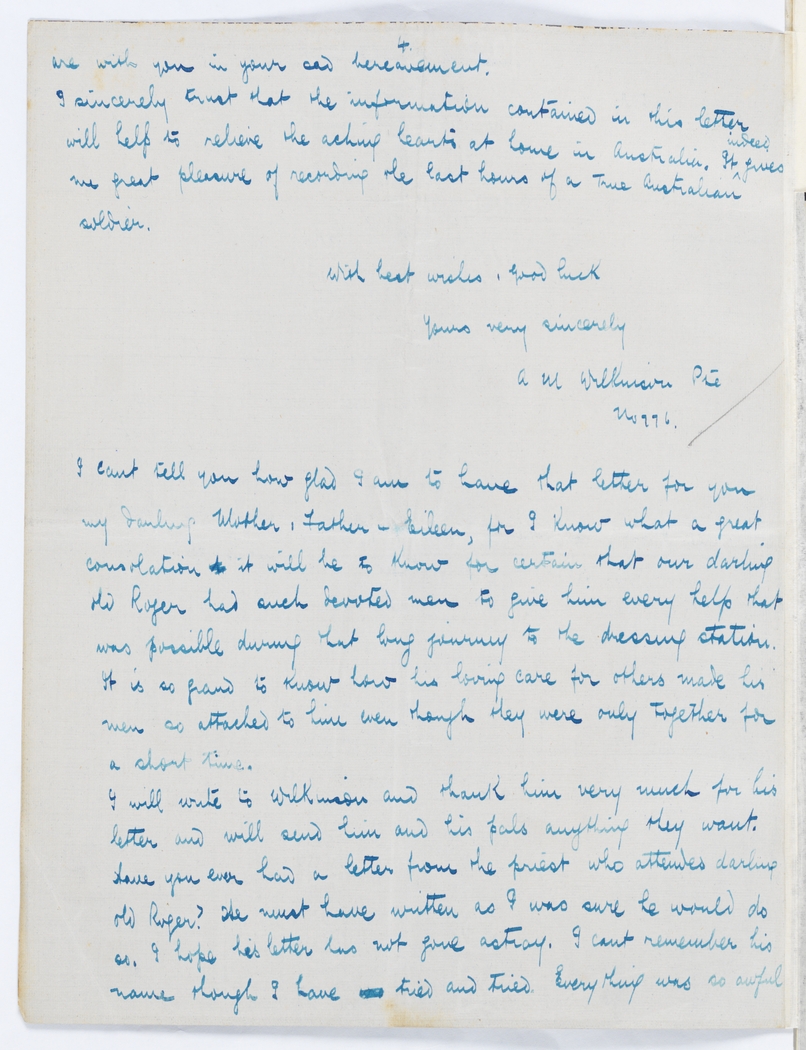 4.
are with you in your sad bereavement.
I sincerely trust that the information contained in this letter
will help to relieve the aching hearts at home in Australia. It indeed gives
me great pleasure of recording the last hours of a True Australian
soldier.
With best wishes & good luck
Yours very sincerely
A M Wilkinson Pte
No 996.
I cant tell you how glad I am to have that letter for you
my darling Mother, Father & Eileen, for I know what a great
consolation it will be to know for certain that our darling
old Roger had such devoted men to give him every help that
was possible during that long journey to the dressing station.
It is so grand to know how his loving care for others made his
men so attached to him even though they were only together for
a short time.
I will write to Wilkinson and thank him very much for his
letter and will send him and his pals anything they want.
Have you ever had a letter from the priest who attended darling
old Roger? He must have written as I was sure he would do
so. I hope his letter has not gone astray. I cant remember his
name though I have tried and tried. Everything was so awful